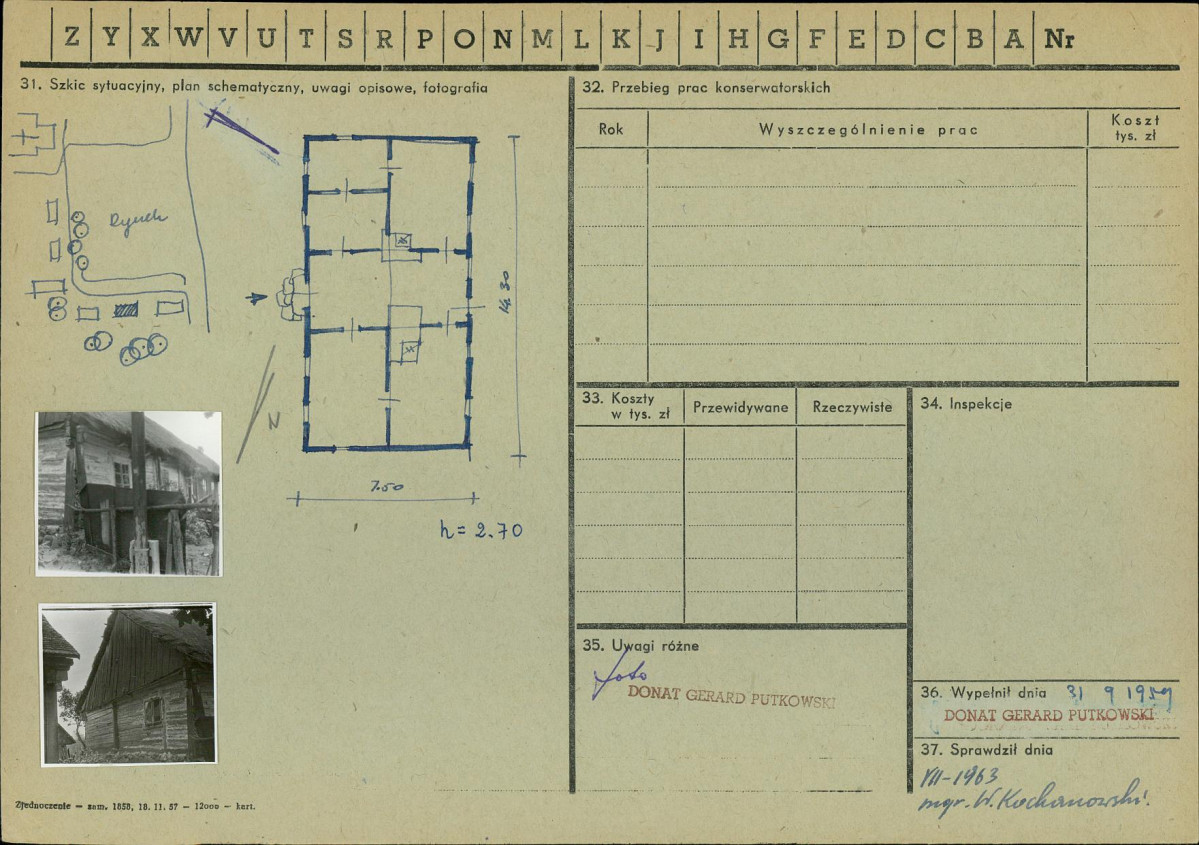 Z Y X W V U T S R P O N M L K J I H G F E D C B A Nr
31. Szkic sytuacyjny, plan schematyczny, uwagi opisowe, fotografia
Rynek
14.30
N
7.50
h = 2.70
Zjednoczenie — zam. 1858, 18. 11. 57 — 12000 — kart.
32. Przebieg prac konserwatorskich
Rok
Wyszczególnienie prac
Koszt
tys. zł
33. Koszty
w tys. zł
Przewidywane
Rzeczywiste
34. Inspekcje
35. Uwagi różne
foto
DONAT GERARD PUTKOWSKI
36. Wypełnił dnia 31 9 1959
DONAT GERARD PUTKOWSKI
37. Sprawdził dnia
VII-1963
mgr. W. Kochanowski.